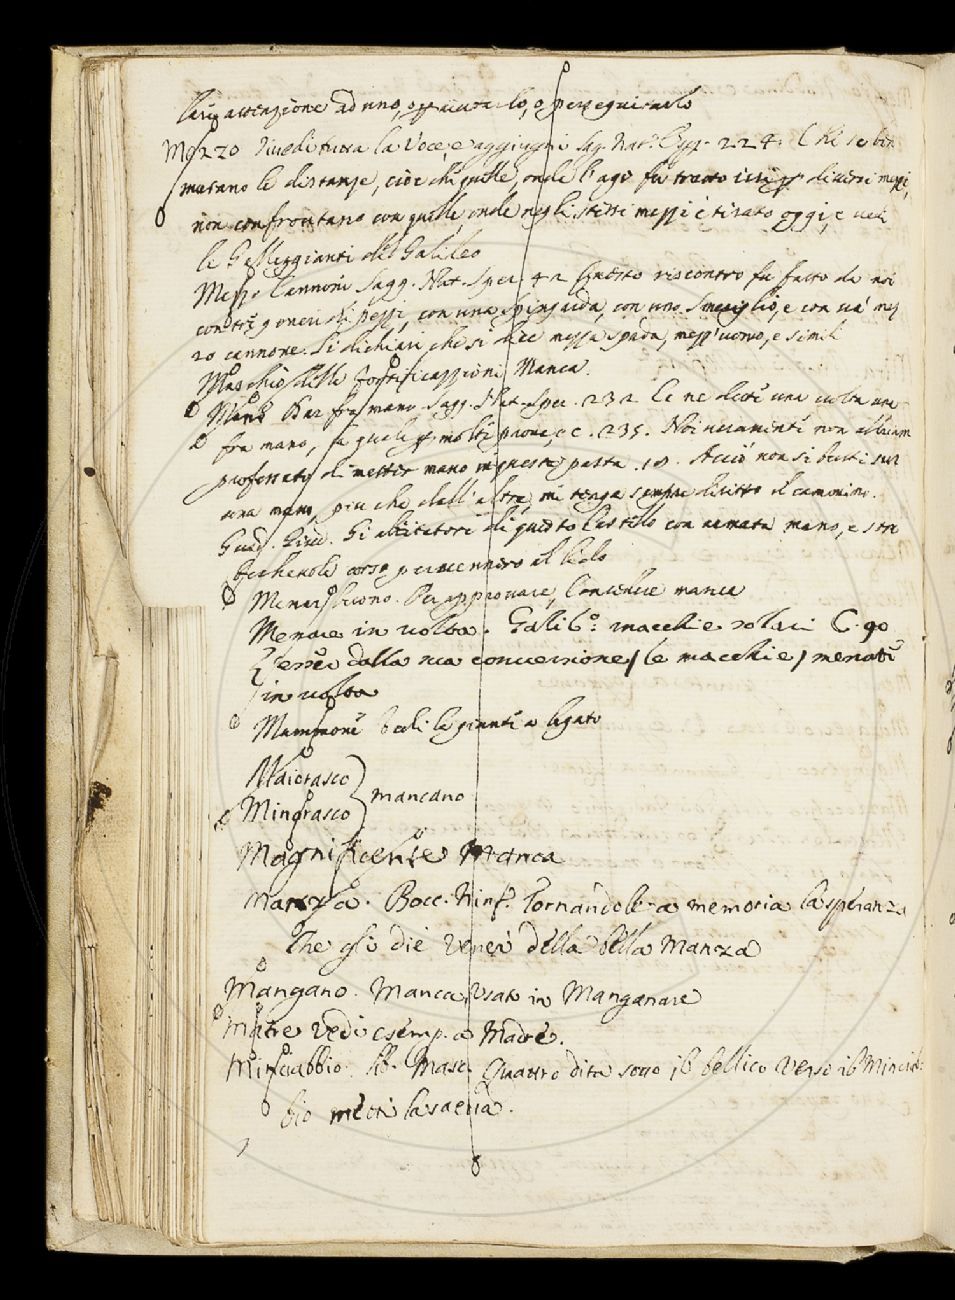 attenzione ad uno, o perseguitarlo
Mezzo rivedi tutta la Voce, e aggiugni Sag. Nat. Esp. 224. Che se ben
mutano le distanze, cioè che quelle, onde l'ago fu tratto ieri diversi mezzi,
non confrontano con quelle, onde negli stessi mezzi è tirato oggi, e ved.
le Galleggianti del Galileo
Mezzi Cannoni Sagg. Nat. Sper. 42 Questo riscontro fu fatto da noi
con tre generi di pezzi, con una spingarda, con uno smeriglio, e con un mez
zo cannone. Si dichiari che si dice mezza spada, mezz'uomo, e simili
Maschio delle fortificazzioni Manca.
Mano Dar fra mano Sagg. Nat. Sper. 232 Ce ne dette una volta una
fra mano, la quale molte prove c. 235. Noi veramente non abbiam
professato di metter mano in questa pasta. 10. Acciò non si butti sur
una mano, più che dall'altra, mi tenga sempre diritto il cammino.
Guid. Giud. Gi abitatori di questo Castello con armata mano, e stra
bocchevole corso pervennero al lido
Menar buono. Per approvare, Concedere manca
Menare in volta. Galil.º macchie solari C. 90
Esser dalla sua conversione / le macchie / menate
in volta
Mammone
Maiorasco
Minorasco } mancano
Magnificente Manca
Manza. Bocc. Ninf. Tornandole a memoria la speranza
Che gli diè Vener della bella Manza
Mangano. Manca, Usato in Manganare
Matre vedi esemp. a Madre.
Minciabbio. Lib. Masc. Quattro dita sotto il bellico verso il Mincib
bio metti la saetta.